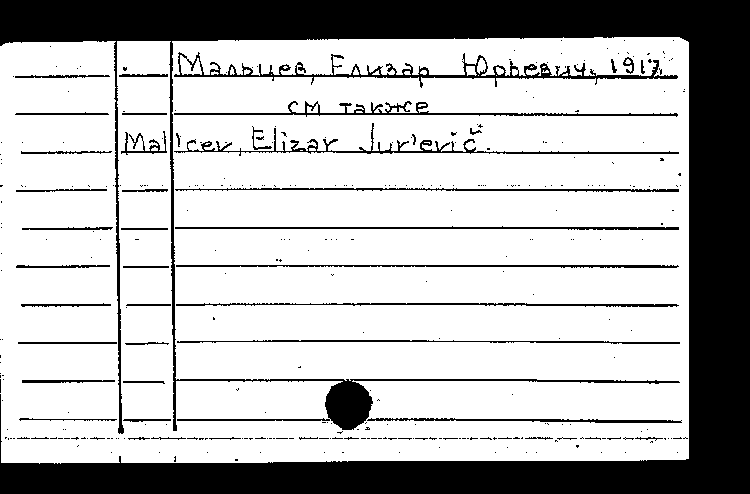 Мальцев, Елизар Юрьевич, 1917
см также
Mal'cev, Elizar Jur'evič.